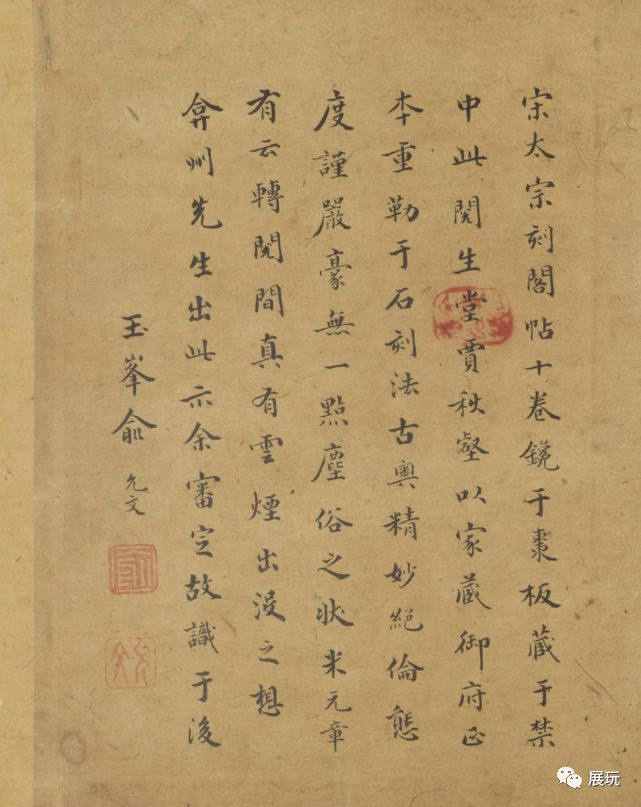 宋太宗刻閣帖十卷鋟于棗板蔵于禁
中此閱生堂賈秋壑以家蔵御府正
本重勒于石刻法古奥精妙絕倫態
度謹嚴豪無一點塵俗之狀米元章
有云轉閱間真有雲煙出沒之想
弇州先生出此示余審定故識于後
玉峯俞允文
展玩